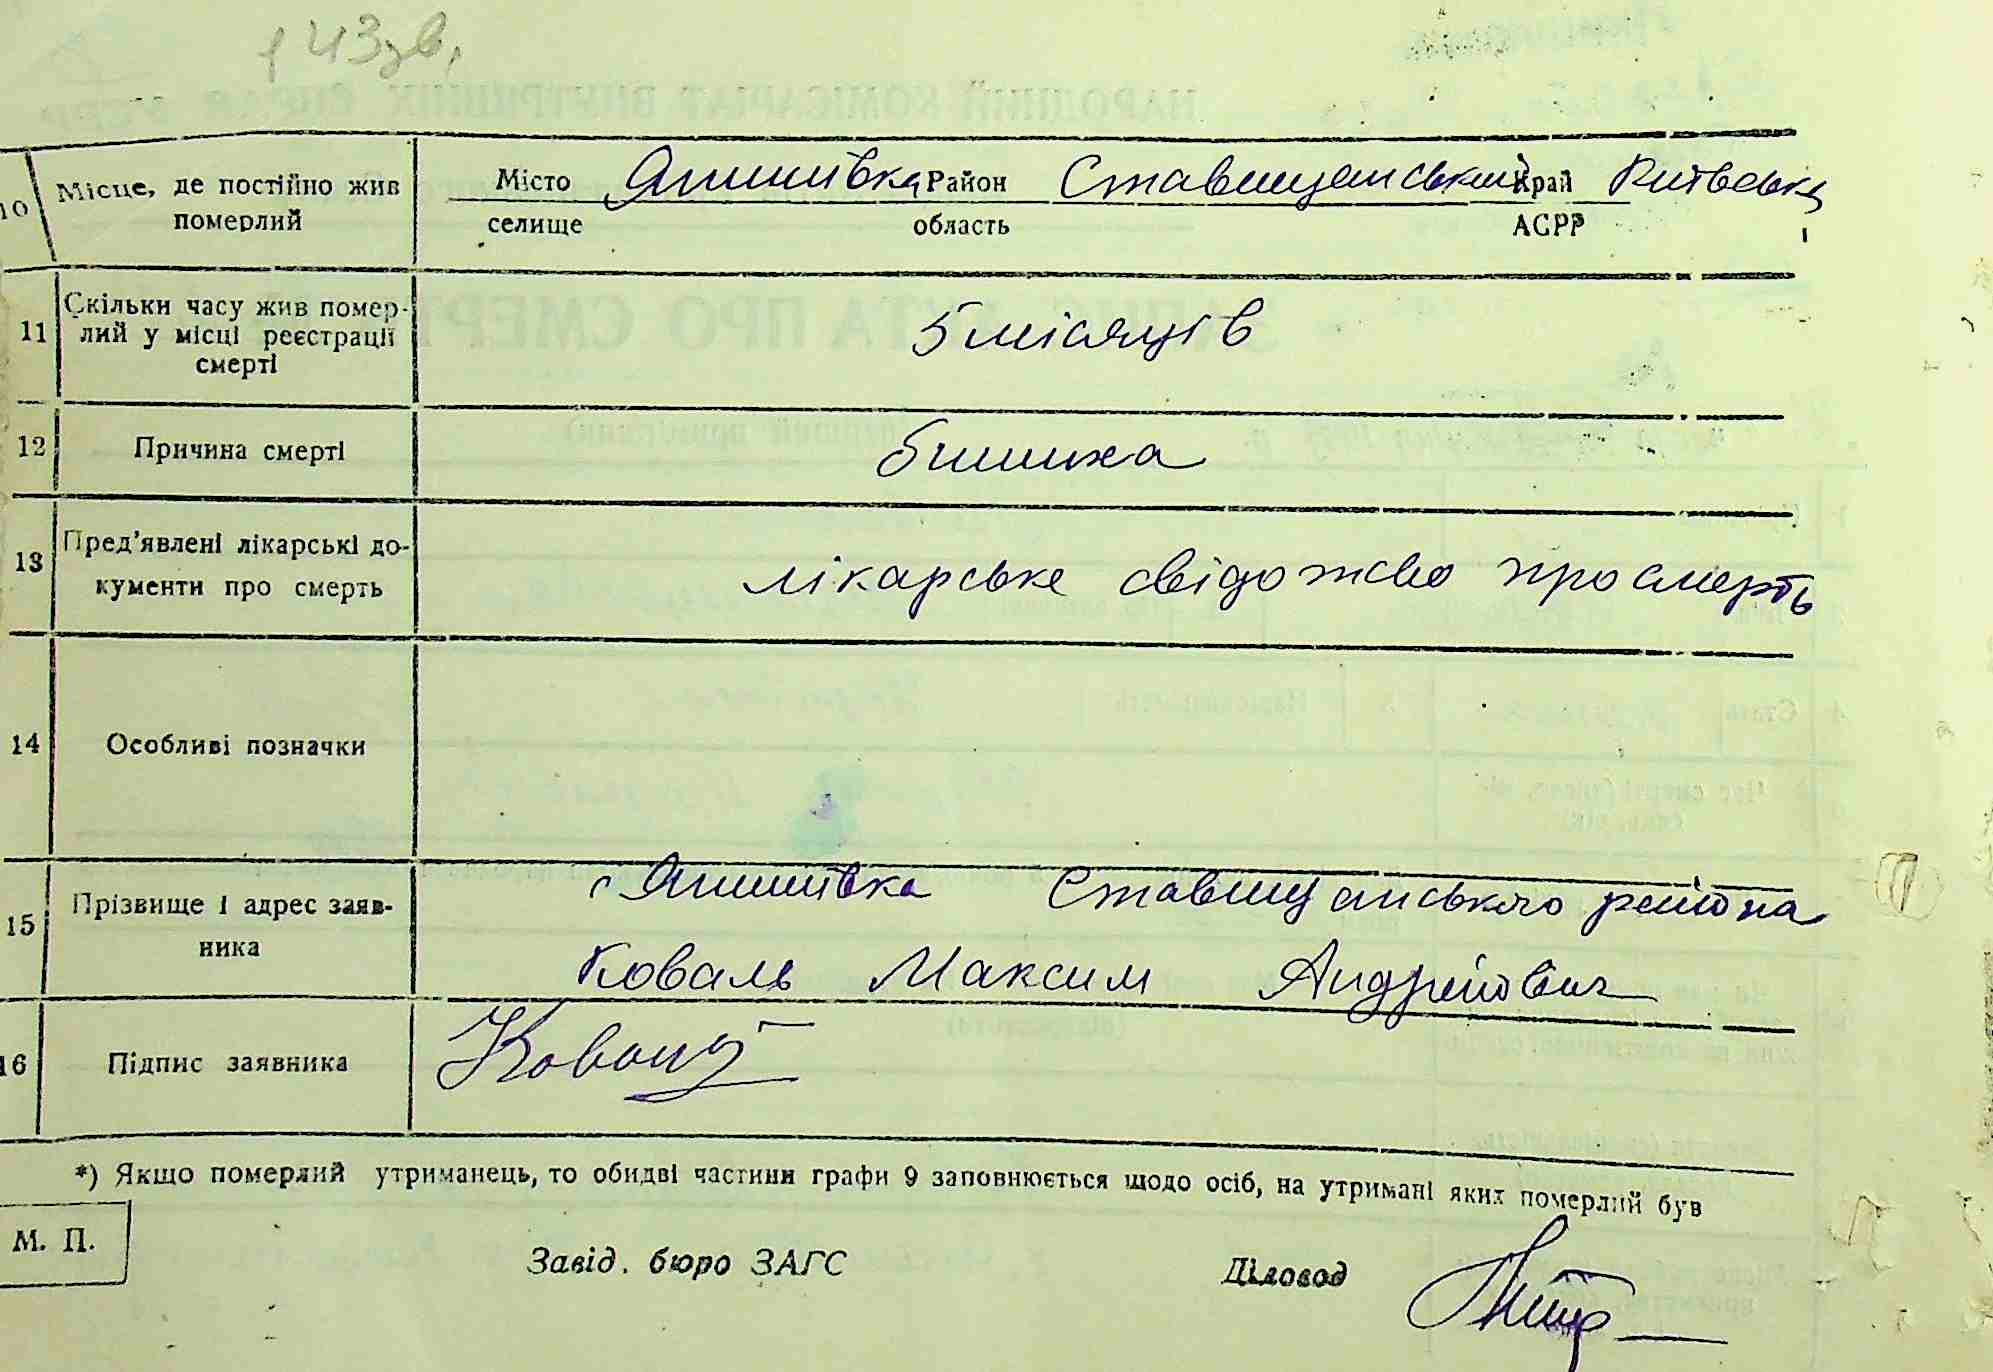 143 зв.
10 Місце, де постійно жив померлий
Місто селище Янишівка Район область Ставищенський Край АСРР Київська
11 Скільки часу жив помер-
лий у місці реєстрації
смерті
5 місяців
12 Причина смерті
бишиха
13 Пред'явлені лікарські до-
кументи про смерть
лікарське свідоцтво про смерть
14 Особливі позначки
15 Прізвище і адрес заяв-
ника
с Янишівка Ставищанського района
Коваль Максим Андрійович
16 Підпис заявника
Коваль
*) Якщо померлий утриманець, то обидві частини графи 9 заповнюється щодо осіб, на утримані яких померлий був
М. П.
Завід. бюро ЗАГС Діловод